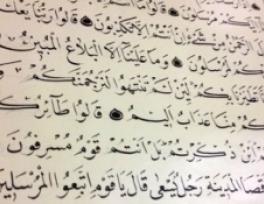 مُرْسَلُونَ ۝ قَالُوا
الرَّحْمٰنُ مِنْ شَيْءٍ إِنْ أَنْتُمْ إِلَّا تَكْذِبُونَ ۝ قَالُوا رَبُّنَا يَعْلَمُ
لَمُرْسَلُونَ ۝ وَمَا عَلَيْنَا إِلَّا الْبَلَاغُ الْمُبِينُ
تَطَيَّرْنَا بِكُمْ لَئِنْ لَمْ تَنْتَهُوا لَنَرْجُمَنَّكُمْ وَ
كُمْ مِنَّا عَذَابٌ أَلِيمٌ ۝ قَالُوا طَائِرُكُ
أَئِنْ ذُكِّرْتُمْ بَلْ أَنْتُمْ قَوْمٌ مُسْرِفُونَ
قْصَا الْمَدِينَةِ رَجُلٌ يَسْعَى قَالَ يَا قَوْمِ اتَّبِعُوا الْمُرْسَلِينَ